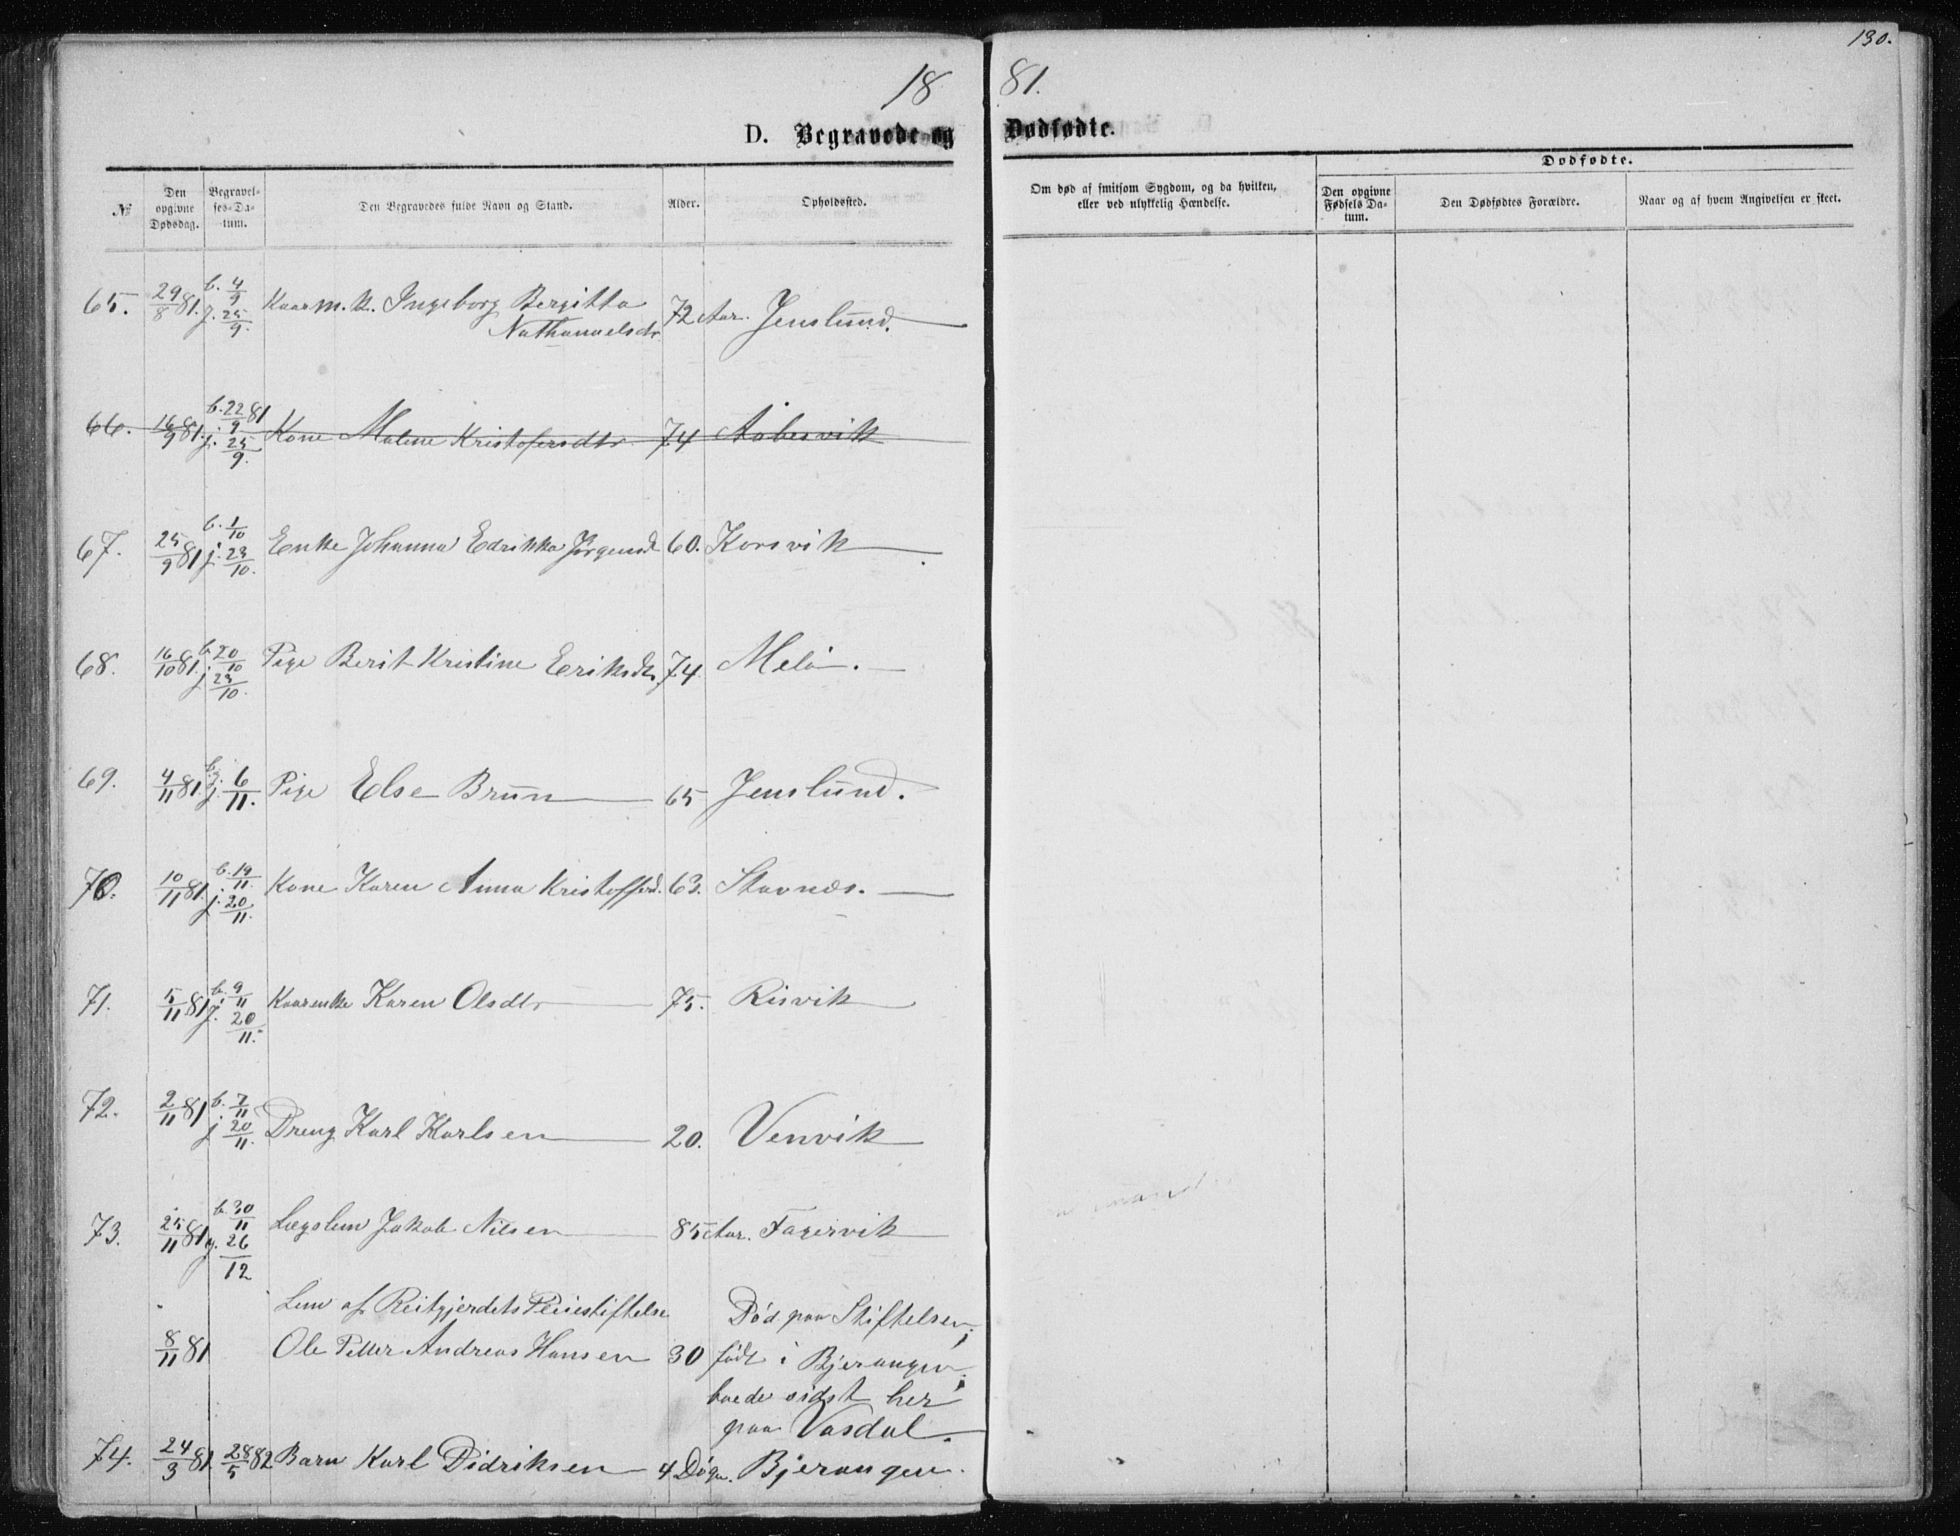 130.
18 81.
D. Begravede og Dødfødte.
№
Den opgivne Dødsdag.
Begravelses-Datum.
Den Begravedes fulde Navn og Stand.
Alder.
Opholdssted.
Om død af smitsom Sygdom, og da hvilken, eller ved ulykkelig Hændelse.
Dødfødte.
Den opgivne Fødsels Datum.
Den Dødfødtes Forældre.
Naar og af hvem Angivelsen er skeet.
65. 29/8 81. b. 4/9 j. 25/9. Kaarm. K. Ingeborg Bergitta 72 Aar. Jenslund.
Nathanaelsdr.
66. 16/9 81. b. 22/9 81 j. 25/9. Kone Malene Kristofersdtr. 74 Aabesvik
67. 25/9 81 b. 1/10 j. 23/10. Enke Johanna Edrikka Jørgensd 60. Korsvik
68. 16/10 81. b. 20/10 j. 23/10. Pige Berit Kristine Eriksdtr. 74. Melø.
69. 4/11 81. b. j. 6/11. Pige Else Brun 65 Jenslund.
70. 10/11 81. b. 19/11. j. 20/11. Kone Karen Anna Kristoffersd. 63. Stavnæs.
71. 5/11 81 b. 9/11 j. 20/11. Kaarenke Karen Olsdtr 75. Risvik
72. 2/11 81 b. 7/11 j. 20/11. Dreng Karl Karlsen 20. Venvik
73. 25/11 81 b. 30/11 j. 26/12 Lægslem Jakob Nilsen 85 Aar. Fagervik
Lem af Reitgjerdets Pleiestiftelse Død paa Stiftelsen;
8/11 81 Ole Petter Andreas Hansen 30 født i Bjerangen;
boede sidst her
paa Vasdal.
74. 24/3 81. 28/5 82 Barn Karl Didriksen 4 Døgn. Bjerangen.